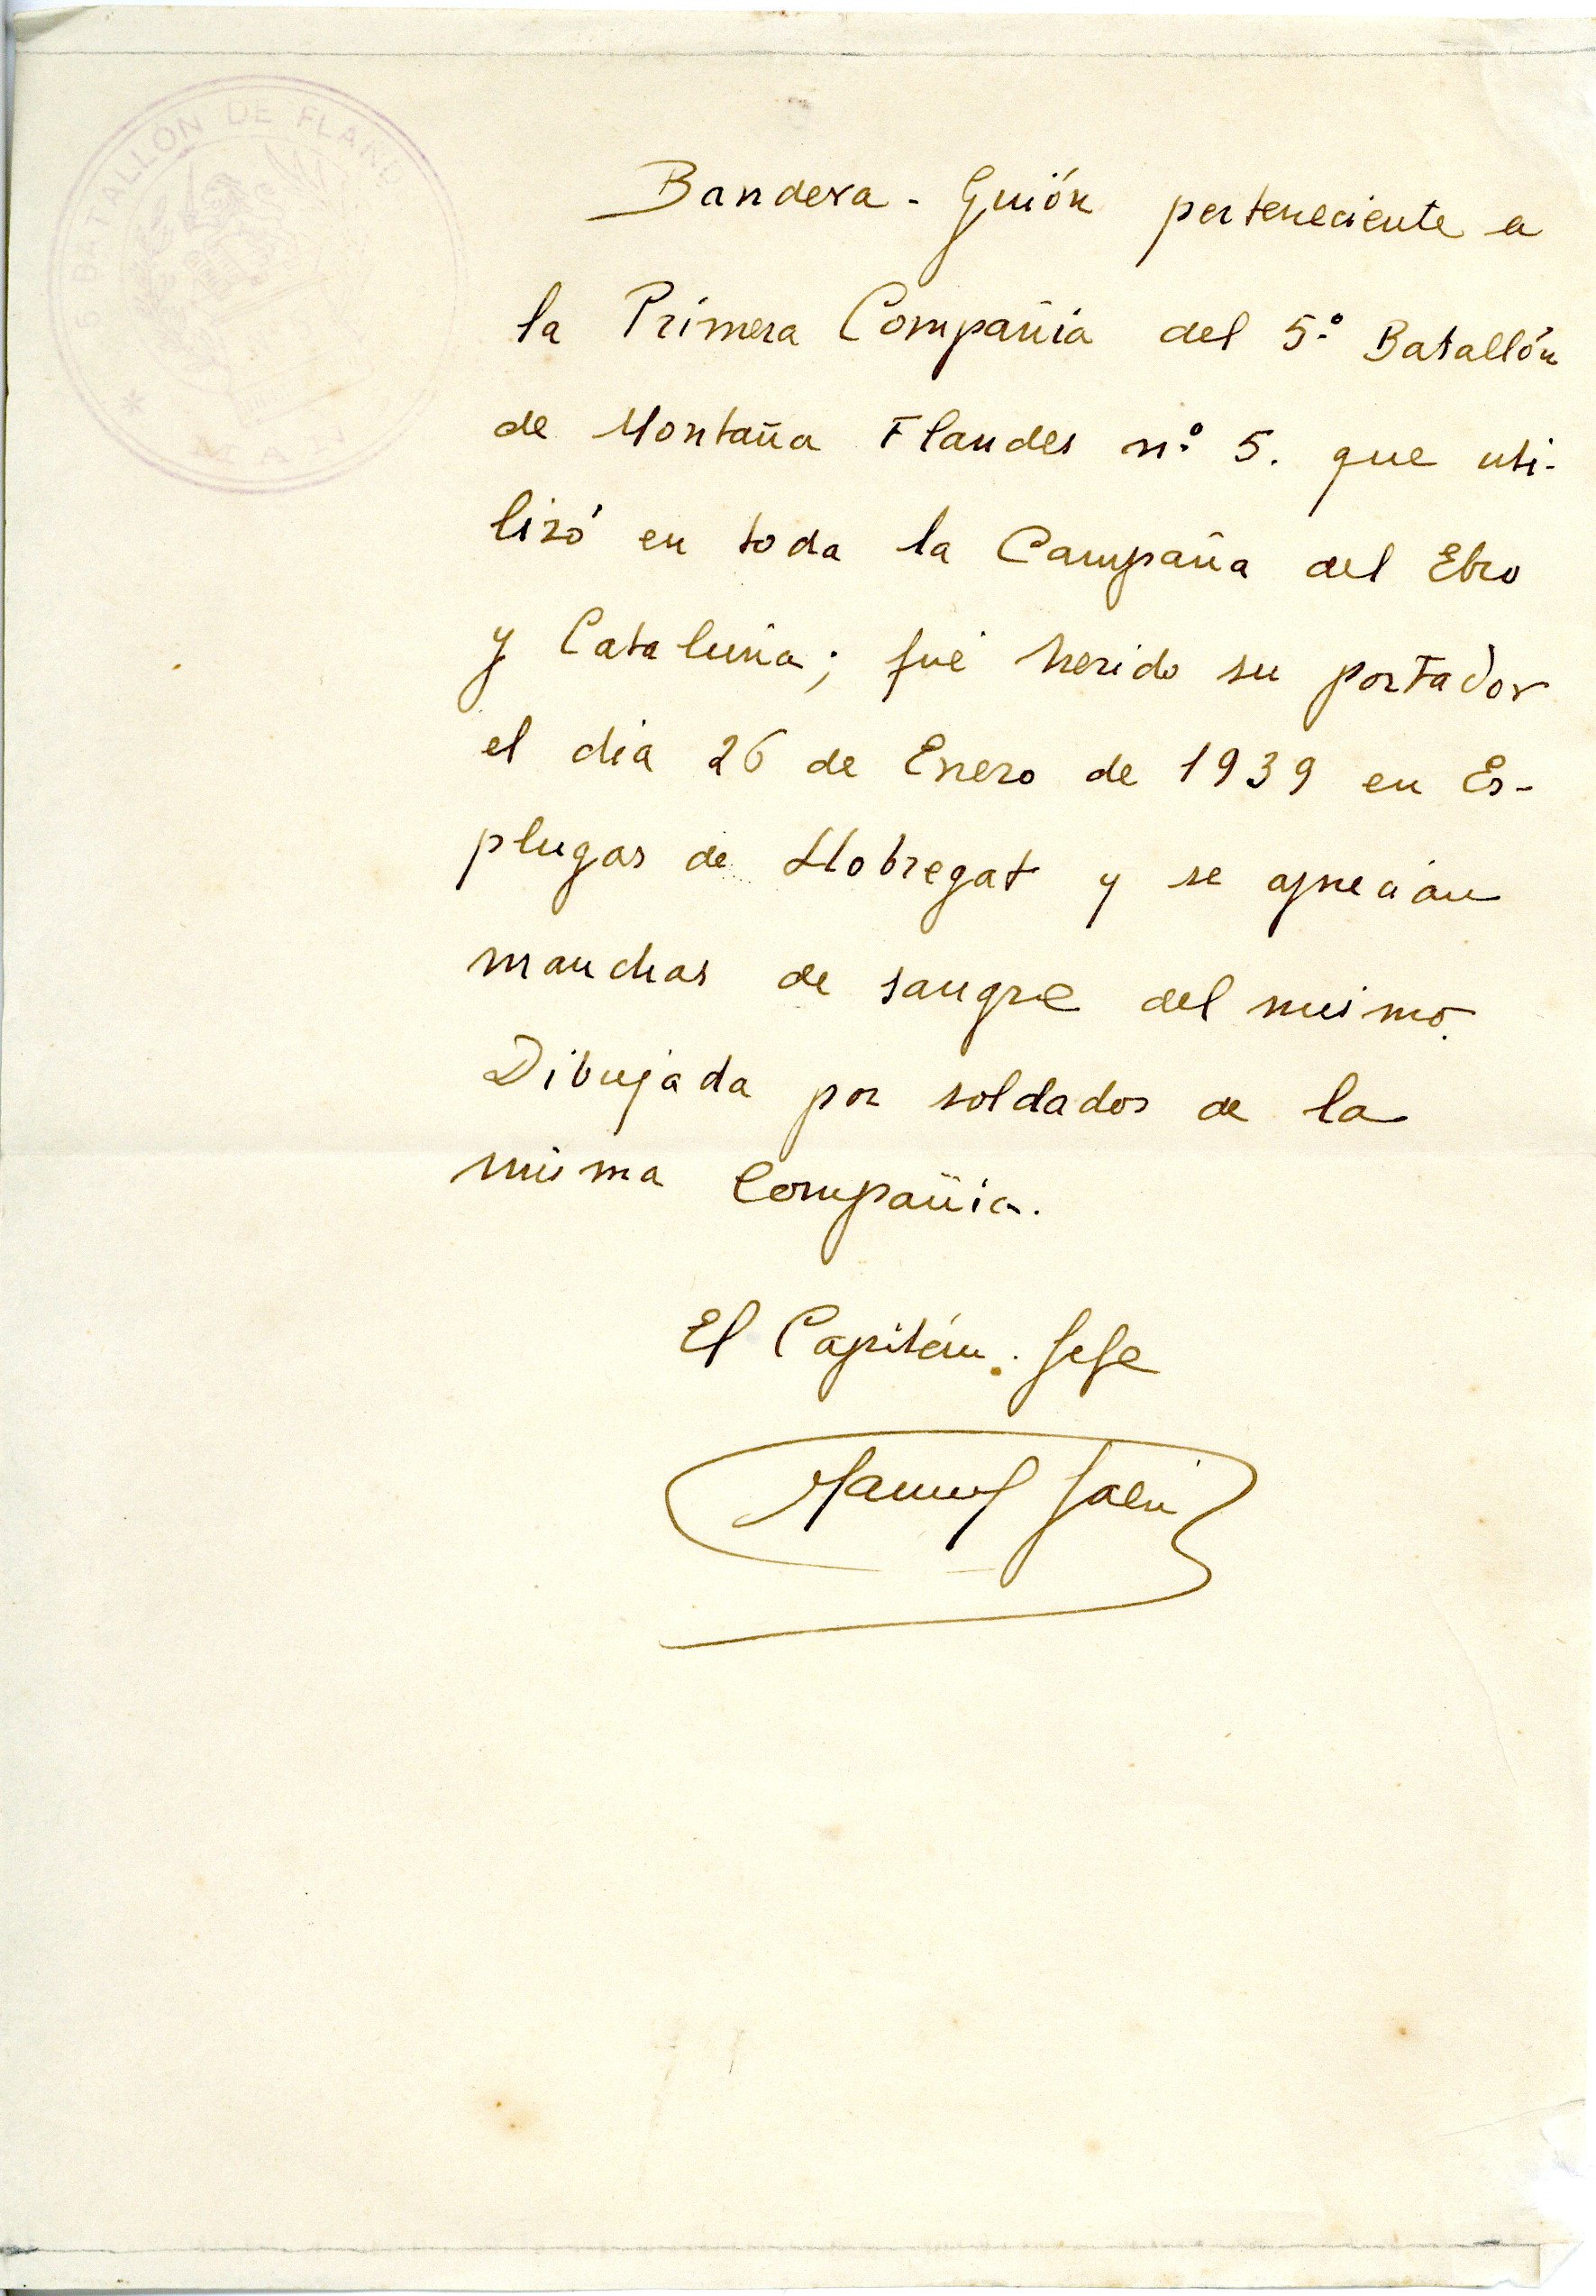 5 BATALLÓN DE FLAND
Bandera - Guión perteneciente a
la Primera Compañia del 5.º Batallón
de Montaña Flandes n.º 5. que uti-
lizó en toda la Campaña del Ebro
y Cataluña; fué herido su portador
el dia 26 de Enero de 1939 en Es-
plugas de Llobregat y se aprecian
manchas de sangre del mismo.
Dibujada por soldados de la
misma Compañia.
El Capitán. Jefe
Manuel